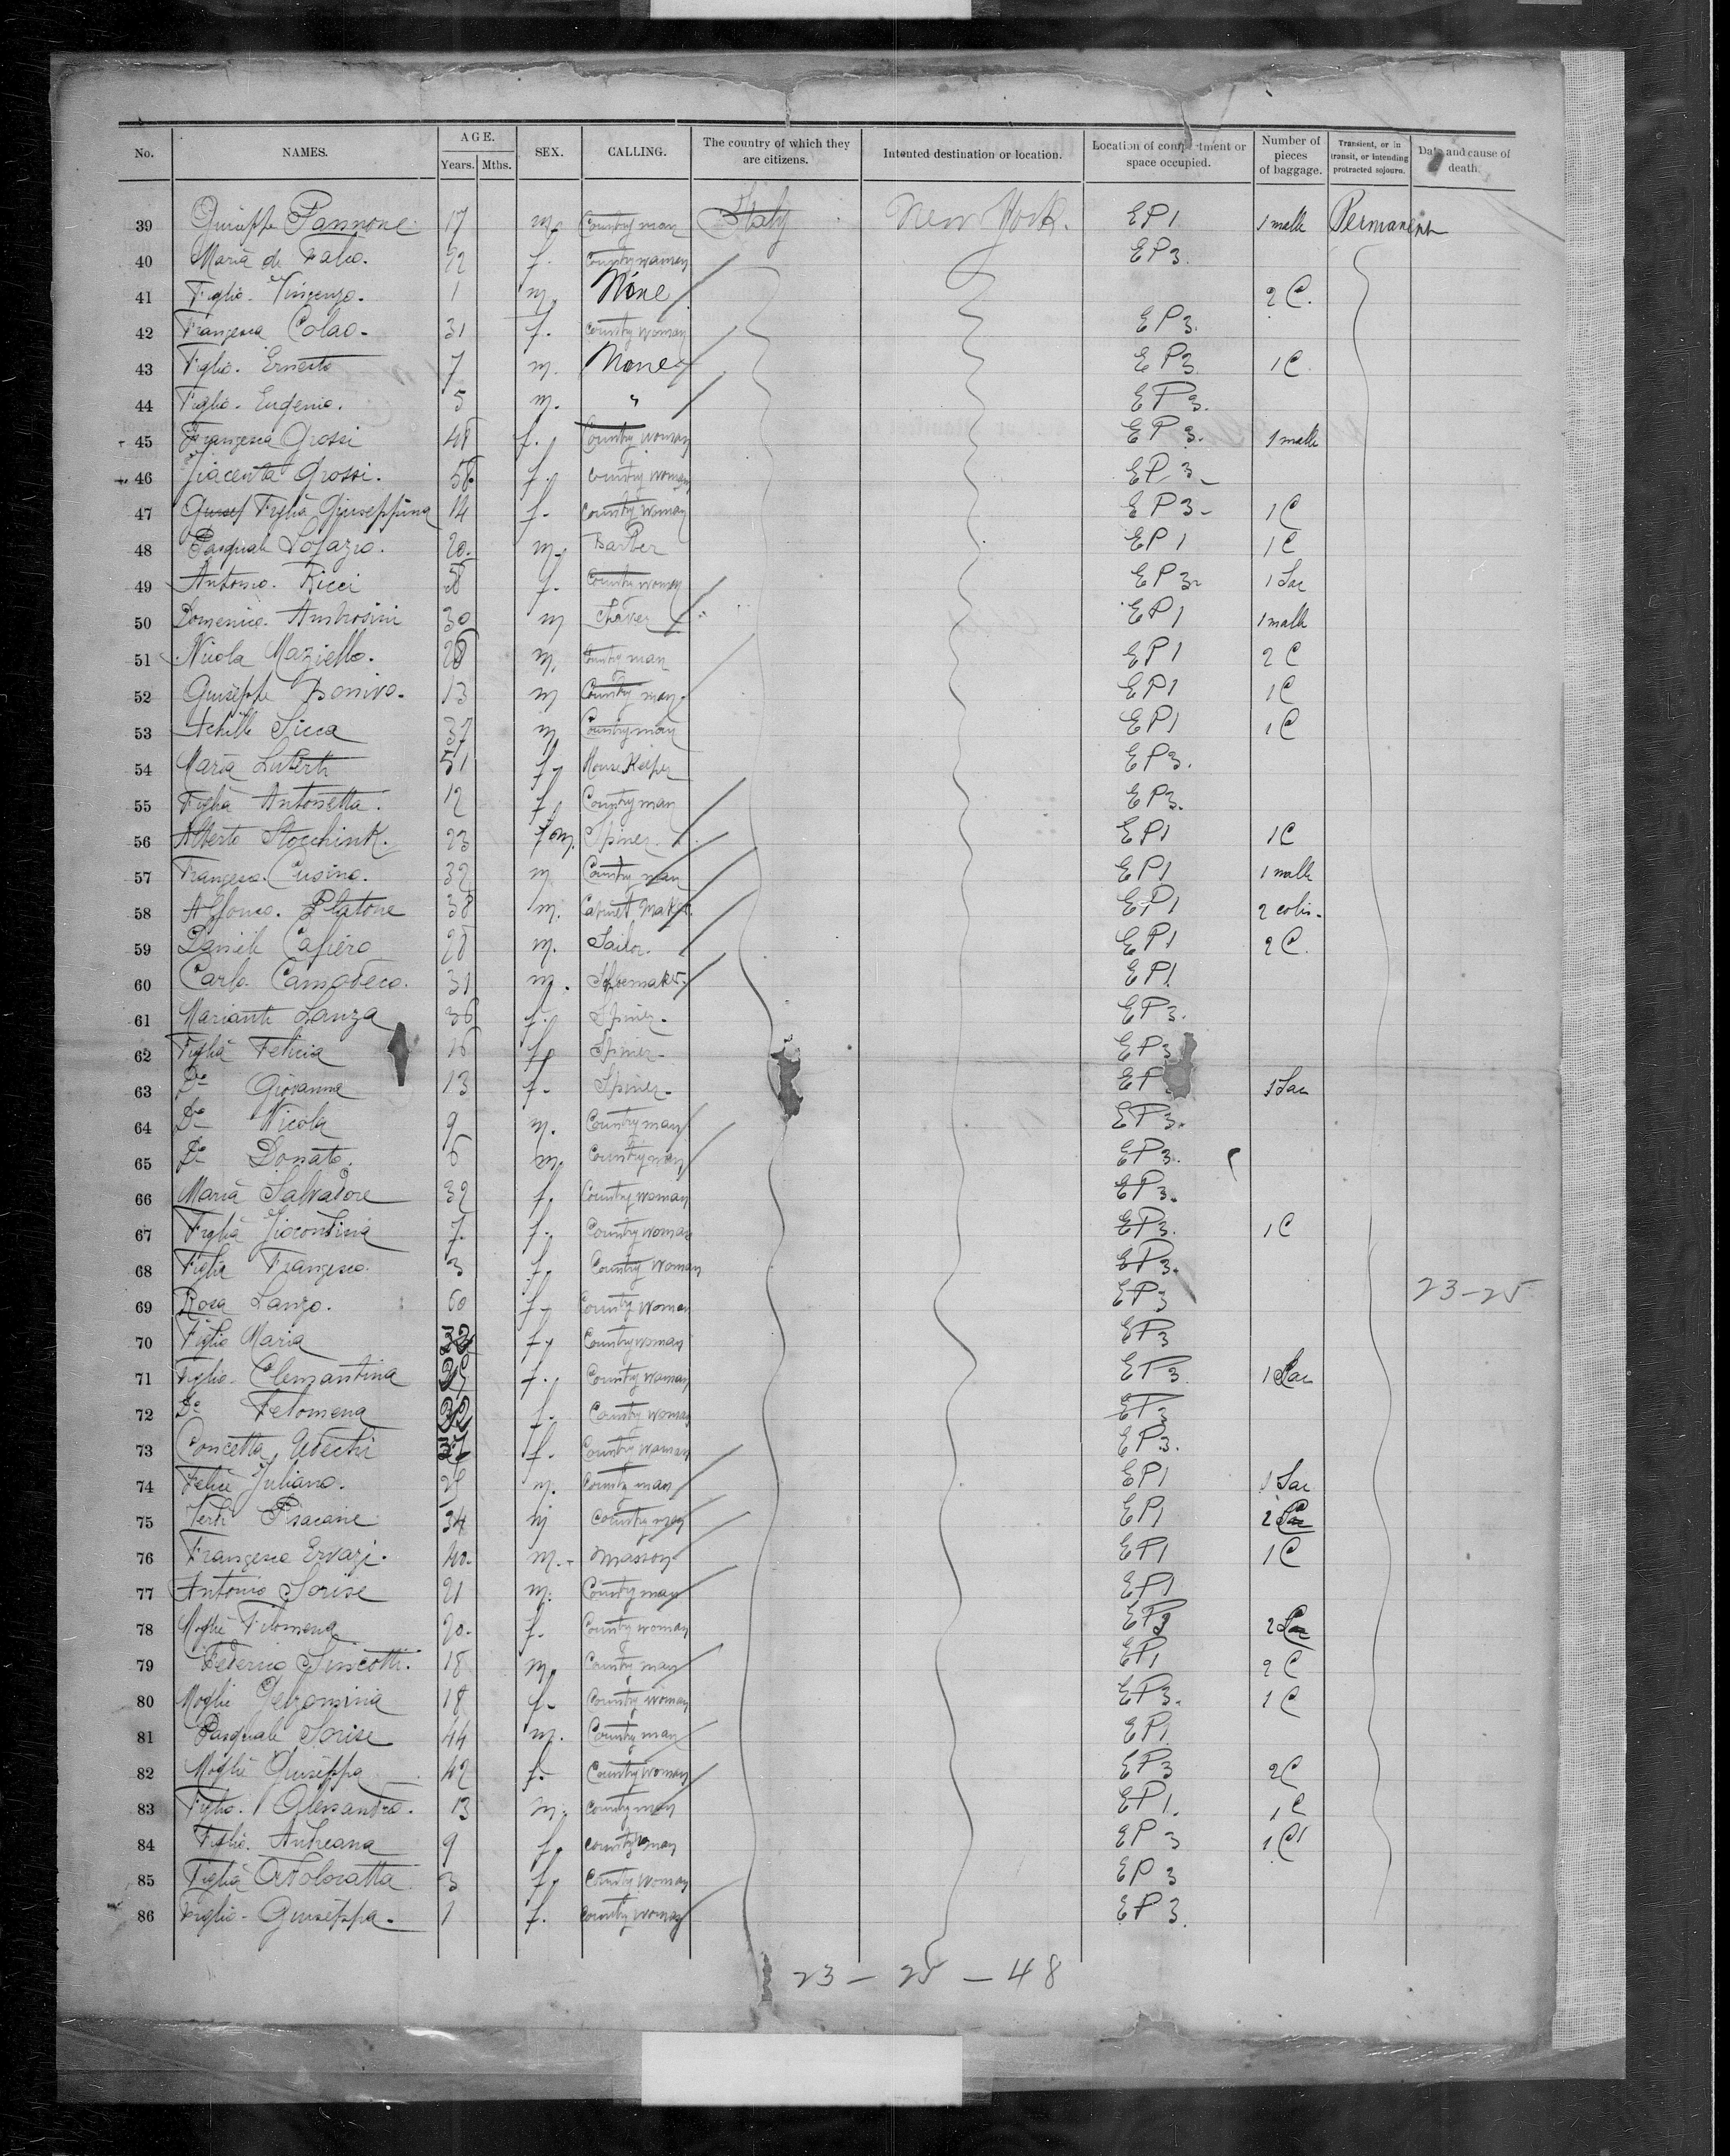 No. NAMES. AGE. Years. Mths. SEX. CALLING. The country of which they are citizens. Intented destination or location. Location of compartment or space occupied. Number of pieces of baggage. Transient, or in transit, or intending protracted sojourn. Date and cause of death.
39 Giuseppe Pannone 17 m. Country man Italy New York. EP1 1 malle Permanent
40 Maria de Falio. 22 f. Country woman EP3.
41 Figlio. Vincenzo. 1 m. None 2 C.
42 Francesca Colao. 31 f. Country woman EP3.
43 Figlio. Ernesto 7 m. None EP3 1 C
44 Figlio. Eugenio. 5 m. " EP3.
45 Francesca Grossi 48 f. Country woman EP3. 1 malle
46 Giacenta Grossi. 58. f. Country woman EP3
47 Giusep Figlia Giuseppina 14 f. Country woman EP3 1 C
48 Pasquale Lofazio. 20. m. Barber EP1 1 C
49 Antonia. Ricci 58 f. Country woman EP3 1 Sac
50 Domenico. Ambrosini 30 m EP1 1 malle
51 Nicola Maziello. 28 m. Country man EP1 2 C
52 Giuseppe Donivo. 13 m Country man. EP1 1 C
53 Achille Sicca 37 m Country man EP1 1 C
54 Maria 51 f. House Keeper EP3.
55 Figlia Antonetta. 12 f Country man EP3.
56 Alberto Stocchink. 23 m. Spiner. EP1 1 C
57 Francesco. Cusino. 32 m Country man EP1 1 malle
58 Alfonso. Platone 38 m. Cabinet Maker. EP1 2 colis.
59 Daniele Cafiero 28 m. Sailor. EP1 2 C.
60 Carlo Camodeco. 31 m. Shoemaker. EP1.
61 Marianti Lanza 36 f. Spiner. EP3.
62 Figlia Felicia 16 f. Spiner. EP3
63 Do Giovanna 13 f. Spiner. EP 1 Sac
64 Do Nicola 9 m. Country man EP3.
65 Do Donato. 6 m. Country man EP3.
66 Maria Salvadore 32 f. Country woman EP3.
67 Figlia 7. f. Country woman EP3. 1 C
68 Figlia Francesca. 3 f. Country woman EP3.
69 Rosa Lanzo. 60 f. Country woman EP3 23-25
70 Figlia Maria 32 f. Country woman EP3
71 Figlia. Clemantina f. Country woman EP3. 1 Sac
72 Do Felomena f. Country woman EP3
73 Concetta f. Country woman EP3.
74 Felice Juliano. m. Country man EP1 1 Sac
75 Pisacane 34 m Country man EP1 2 C
76 Francesco Ervazi. 40. m. Masson EP1 1 C
77 Antonio Sorise 21 m. Country man EP1
78 Moglie Filomena 20. f. Country woman EP3 2 C
79 Federico Siniscotti. 18 m. Country man EP1 2 C
80 Moglie Gelsomina 18 f. Country woman EP3. 1 C
81 Pasquale Sorise 44 m. Country man EP1.
82 Moglie Giuseppa 42 f. Country woman EP3 2 C
83 Figlio. Alessandro. 13 m. Country man EP1. 1 C
84 Figlia. Andreana 9 f. Country woman EP3 1 C
85 Figlia Addoloratta 3 f. Country woman EP3
86 Figlia. Giuseppa. 1 f. Country woman EP3.
23 - 25 - 48